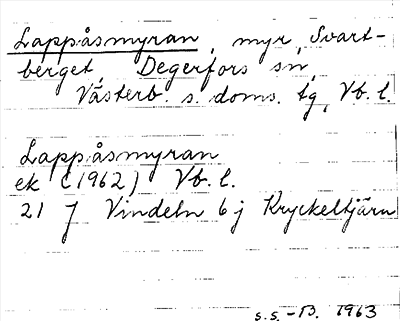 Lappåsmyran, myr, Svart-
berget, Degerfors sn,
Västerb. s. doms. tg, Vb. l.
Lappåsmyran
ek (1962) Vb. l.
21 J Vindeln 6 j Kryckeltjärn
s.s. -B. 1963